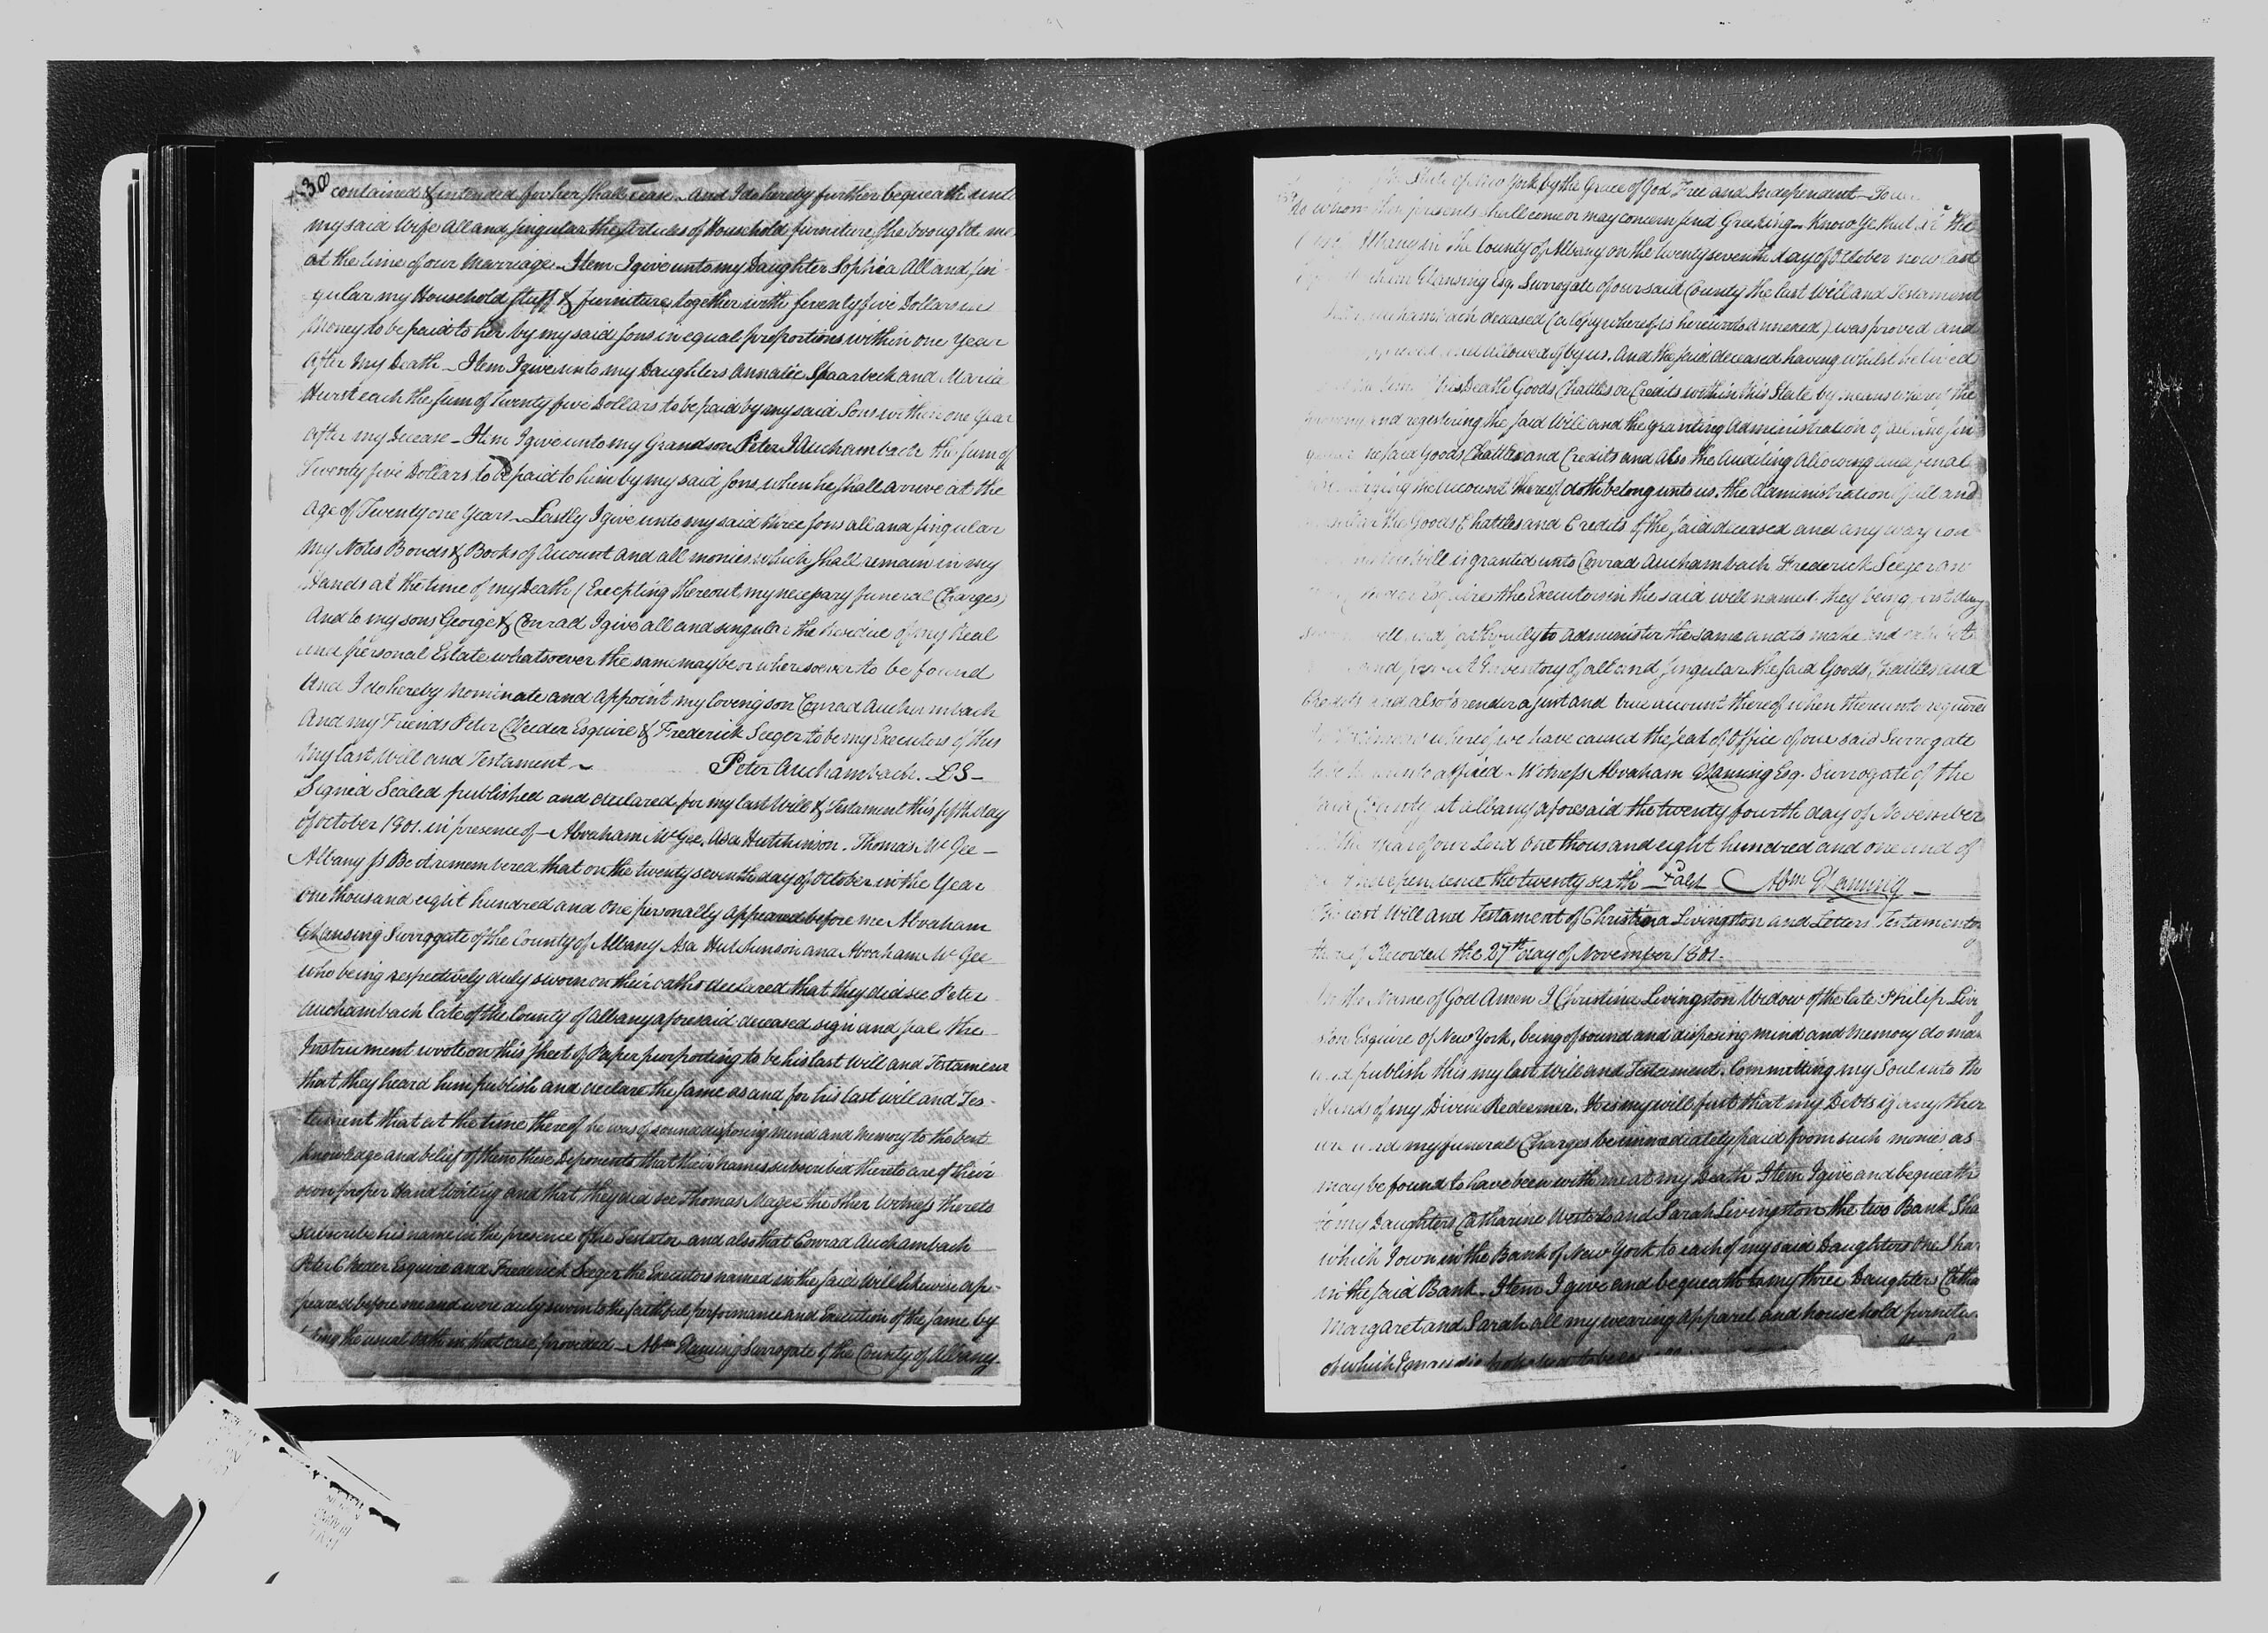 contained & intended for her shall cease. And I do hereby further bequeath unto
my said Wife all and singular the Articles of Household furniture she brought me
at the time of our Marriage. Item I give unto my Daughter Sophia All and sin-
gular my Household stuff & furniture together with seventy five Dollars in
Money to be paid to her by my said sons in equal proportions within one Year
after my Death – Item I give unto my Daughters Annatie Spaarbeck and Maria
Hurst each the sum of Twenty five Dollars to be paid by my said Sons within one Year
after my Decease – Item I give unto my Grandson Peter I Auchambach the sum of
Twenty five Dollars to be paid to him by my said sons when he shall arrive at the
age of Twenty one Years – Lastly I give unto my said three sons all and singular
my Notes Bonds & Books of Account and all monies which shall remain in my
Hands at the time of my Death (Excepting thereout my necessary funeral Charges)
And to my sons George & Conrad I give all and singular the Residue of my Real
and personal Estate whatsoever the same may be or wheresoever to be found
And I do hereby Nominate and appoint my loving son Conrad Auchambach
And my Friends Peter C Veeder Esquire & Frederick Seeger to be my Executors of this
my last Will and Testament ~ Peter Auchambach. LS –
Signed Sealed published and declared for my last Will & Testament this fifth day
of October 1801. in presence of – Abraham McGee. Asa Hutchinson. Thomas McGee –
Albany ss Be it remembered that on the twenty seventh day of October in the Year
one thousand eight hundred and one personally appeared before me Abraham
G Lansing Surrogate of the County of Albany Asa Hutchinson and Abraham McGee
who being respectively duly sworn on their oaths declared that they did see Peter
Auchambach late of the County of Albany aforesaid deceased sign and seal the
Instrument wrote on this sheet of Paper purporting to be his last Will and Testament
that they heard him publish and declare the same as and for his last will and Tes-
tament that at the time thereof he was of sound disposing mind and Memory to the best
knowledge and belief of them these Deponents that their names subscribed thereto are of their
own proper Hand Writing and that they did see Thomas Magee the other Witness thereto
subscribe his name in the presence of the Testator and also that Conrad Auchambach
Peter C Veeder Esquire and Frederick Seeger the Executors named in the said Will likewise ap-
peared before me and were duly sworn to the faithful performance and Execution of the same by
taking the usual Oath in that case provided – Abm G Lansing Surrogate of the County of Albany.
439
the State of New York by the Grace of God Free and Independent – To
to whom these presents shall come or may concern send Greeting – Know Ye that at the
Albany in the County of Albany on the twenty seventh day of October now last
G Lansing Esq. Surrogate of our said County the last Will and Testament
Auchambach deceased (a Copy whereof is hereunto annexed) was proved and
approved and allowed of by us. And the said deceased having whilst he lived
time of his Death Goods Chattles or Credits within this State by means whereof the
and registring the said Will and the granting Administration of all and sin
the said Goods Chattles and Credits and also the Auditing Allowing and final
discharging the Account thereof doth belong unto us. the Administration of all and
singular the Goods Chattles and Credits of the said deceased and any way con
Will is granted unto Conrad Auchambach Frederick Seeger an
Veeder Esquires the Executors in the said will named. they being first duly
well and faithfully to administer the same and to make and exhibit
and perfect Inventory of all and singular the said Goods, Chattles and
Credits and also to render a just and true account thereof when thereunto required
whereof we have caused the seal of Office of our said Surrogate
to be hereunto affixed – Witness Abraham G Lansing Esq. Surrogate of the
said County at Albany aforesaid the twenty fourth day of November
the year of our Lord one thousand eight hundred and one and of
Independence the twenty sixth – Abm G Lansing –
The last Will and Testament of Christina Livingston and Letters Testamentary
thereof Recorded the 27th day of November 1801.
In the Name of God Amen I Christina Livingston Widow of the late Philip Living
ston Esquire of New York, being of sound and disposing mind and memory do make
and publish this my last Will and Testament. Committing my Soul into the
Hands of my Divine Redeemer. It is my will first that my Debts if any there
are and my funeral Charges be immediately paid from such monies as
may be found to have been with me at my Death Item I give and bequeath
to my Daughters Catharine Westerlo and Sarah Livingston the two Bank Sha
which I own in the Bank of New York to each of my said Daughters One Sha
in the said Bank. Item I give and bequeath to my three Daughters Catha
Margaret and Sarah all my wearing Apparel and household furniture
of which I